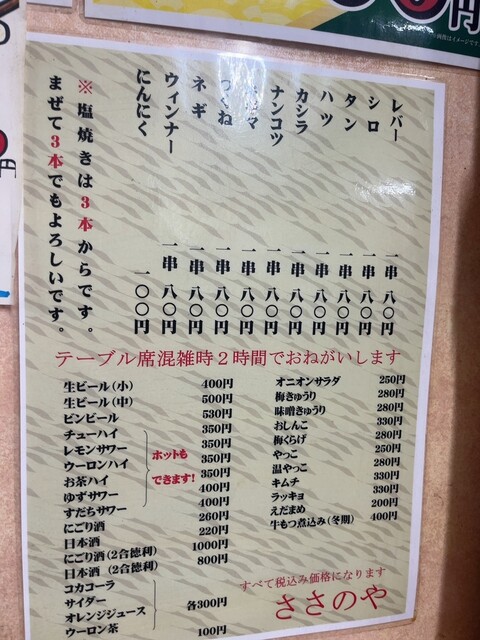 レバー 一串 八〇円
シロ 一串 八〇円
タン 一串 八〇円
ハツ 一串 八〇円
カシラ 一串 八〇円
ナンコツ 一串 八〇円
マ 一串 八〇円
つくね 一串 八〇円
ネギ 一串 八〇円
ウィンナー 一串 八〇円
にんにく 一〇〇円
※塩焼きは3本からです。
まぜて3本でもよろしいです。
テーブル席混雑時2時間でおねがいします
生ビール(小) 400円
生ビール(中) 500円
ビンビール 530円
チューハイ 350円
レモンサワー 350円
ウーロンハイ 350円
お茶ハイ 350円
ゆずサワー 400円
すだちサワー 400円
ホットも
できます!
にごり酒 260円
日本酒 220円
にごり酒(2合徳利) 1000円
日本酒(2合徳利) 800円
コカコーラ
サイダー
オレンジジュース
各300円
ウーロン茶 100円
オニオンサラダ 250円
梅きゅうり 280円
味噌きゅうり 280円
おしんこ 330円
梅くらげ 280円
やっこ 250円
温やっこ 280円
キムチ 330円
ラッキョ 330円
えだまめ 200円
牛もつ煮込み(冬期) 400円
すべて税込み価格になります
ささのや